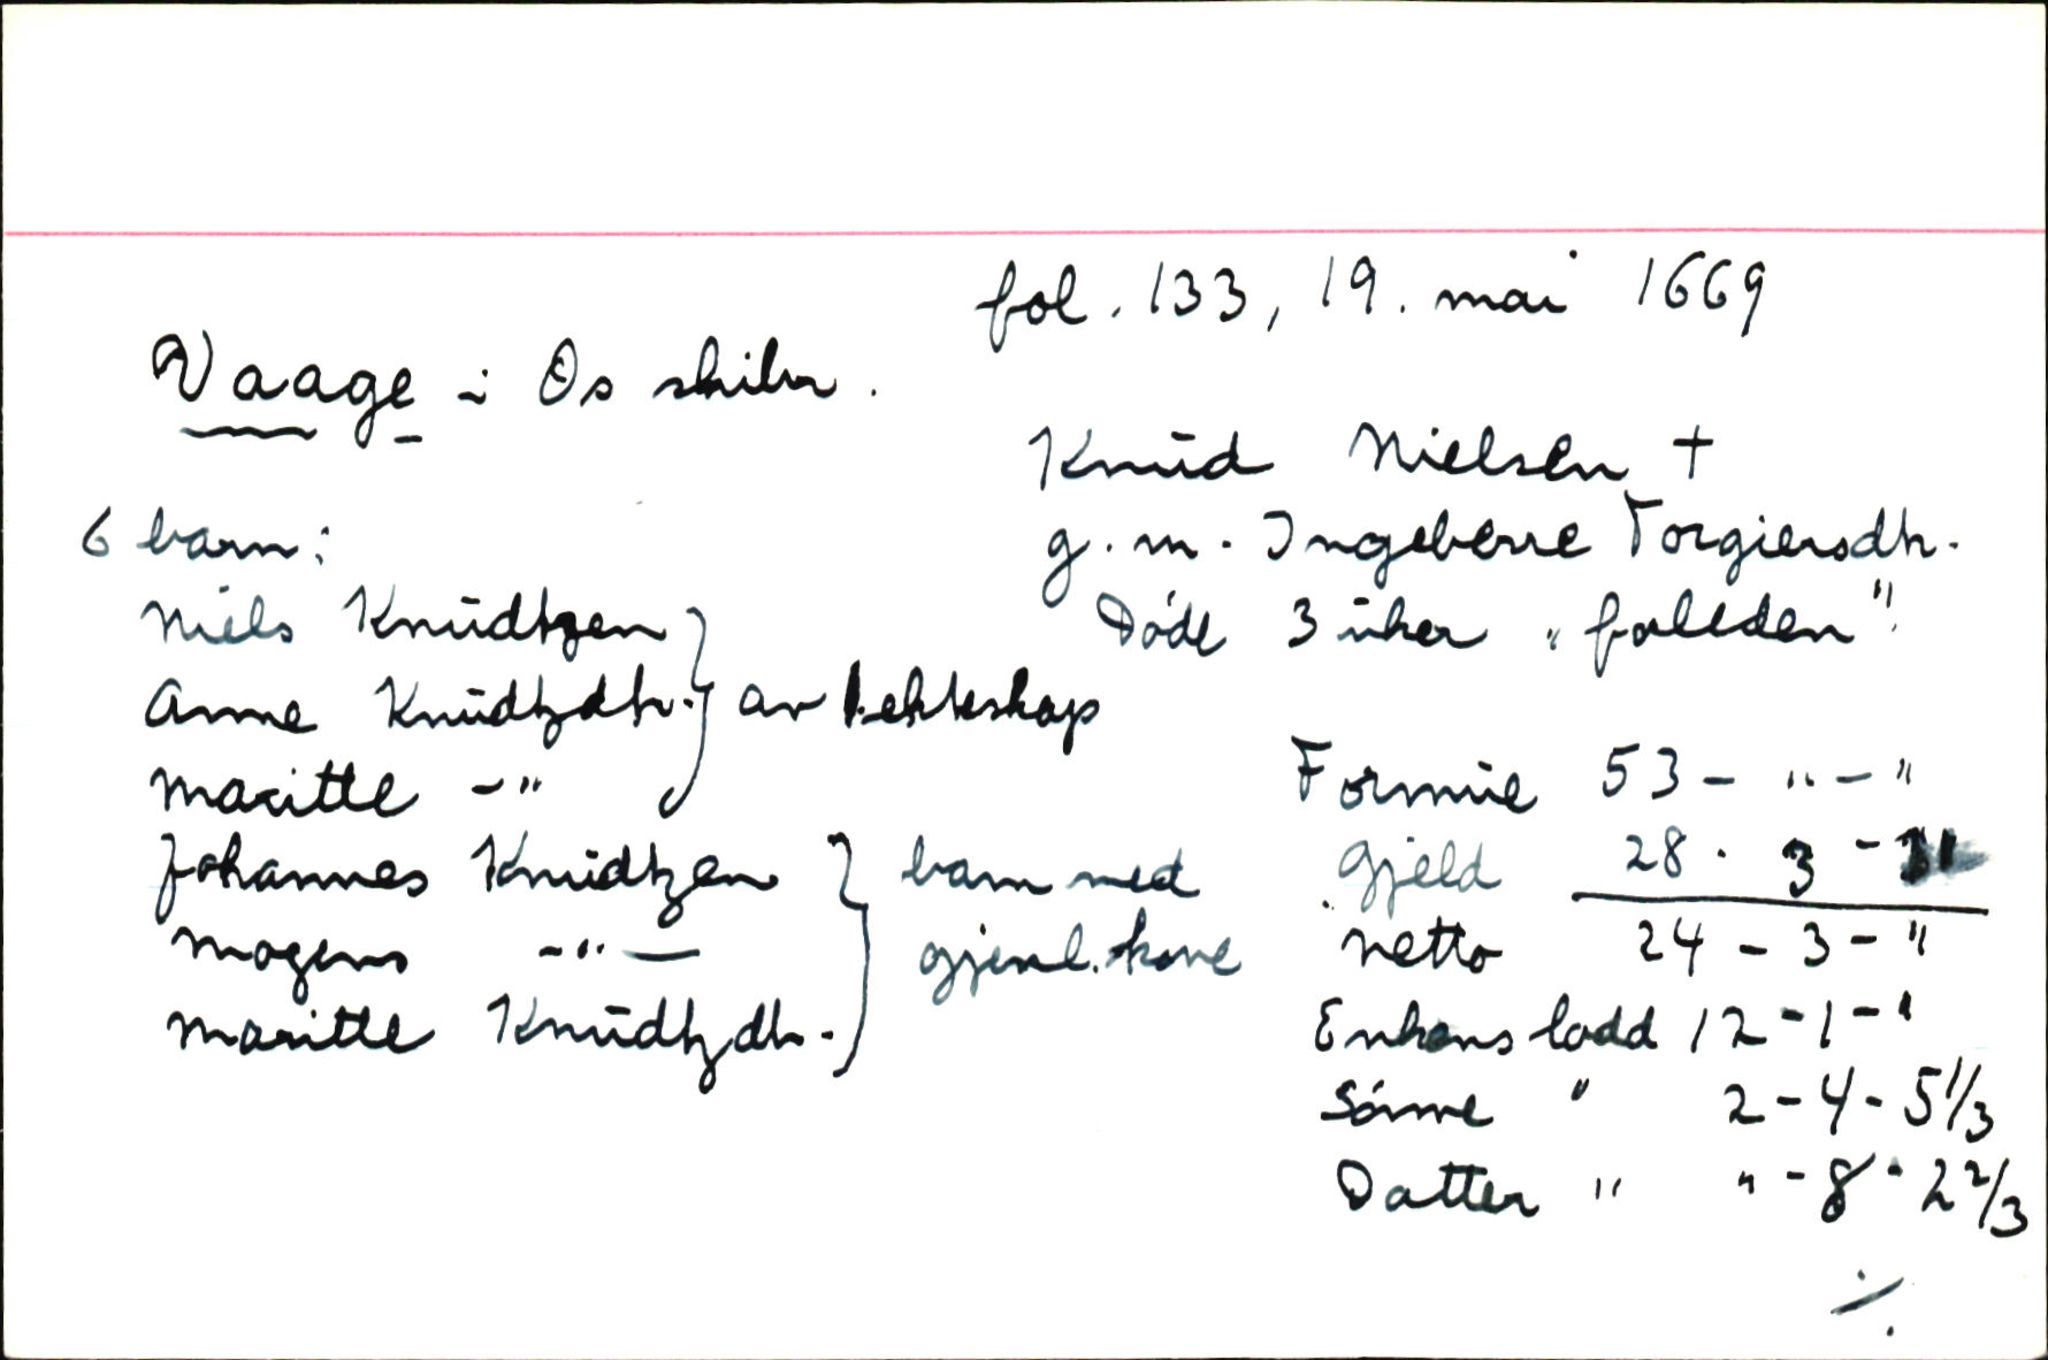 fol. 133, 19. mai 1669
Vaage i Os skibr.
Knud Nielsen +
g. m. Ingeberre Torgiersdtr.
Døde 3 uker "falleden"
6 barn:
Niels Knudtzen
Anne Knudtzdtr. } av 1. ekteskap
Maritte -"
Johannes Knudtzen } barn med
Mogens -"- gjenl. kone
Maritte Knudtzdtr.
Formue 53 - " - "
Gjeld 28 - 3 - "
Netto 24 - 3 - "
Enkens lodd 12 - 1 - "
Sønne " 2 - 4 - 5 1/3
Datter " " - 8 - 2 2/3
./.